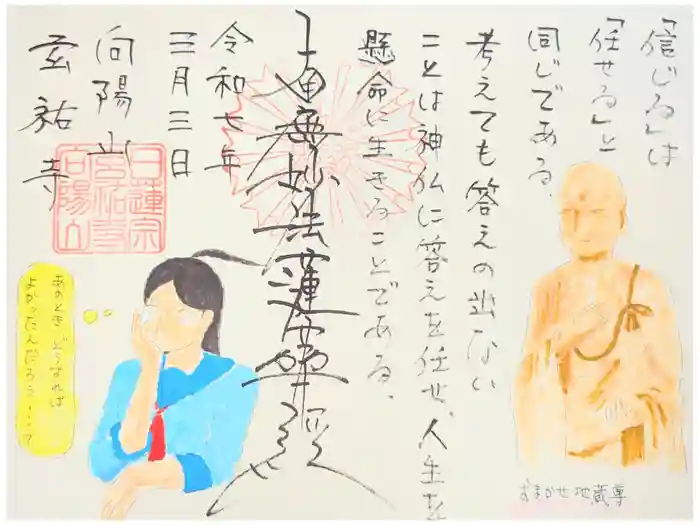 「信じる」は
「任せる」と
同じである。
考えても答えの出ない
ことは神仏に答えを任せ、人生を
懸命に生きることである。
南無妙法蓮華経
令和七年
三月三日
向陽山
玄祐寺
日蓮宗
玄祐寺
向陽山
あのとき どうすれば
よかったんだろう・・・って
おまかせ地蔵尊